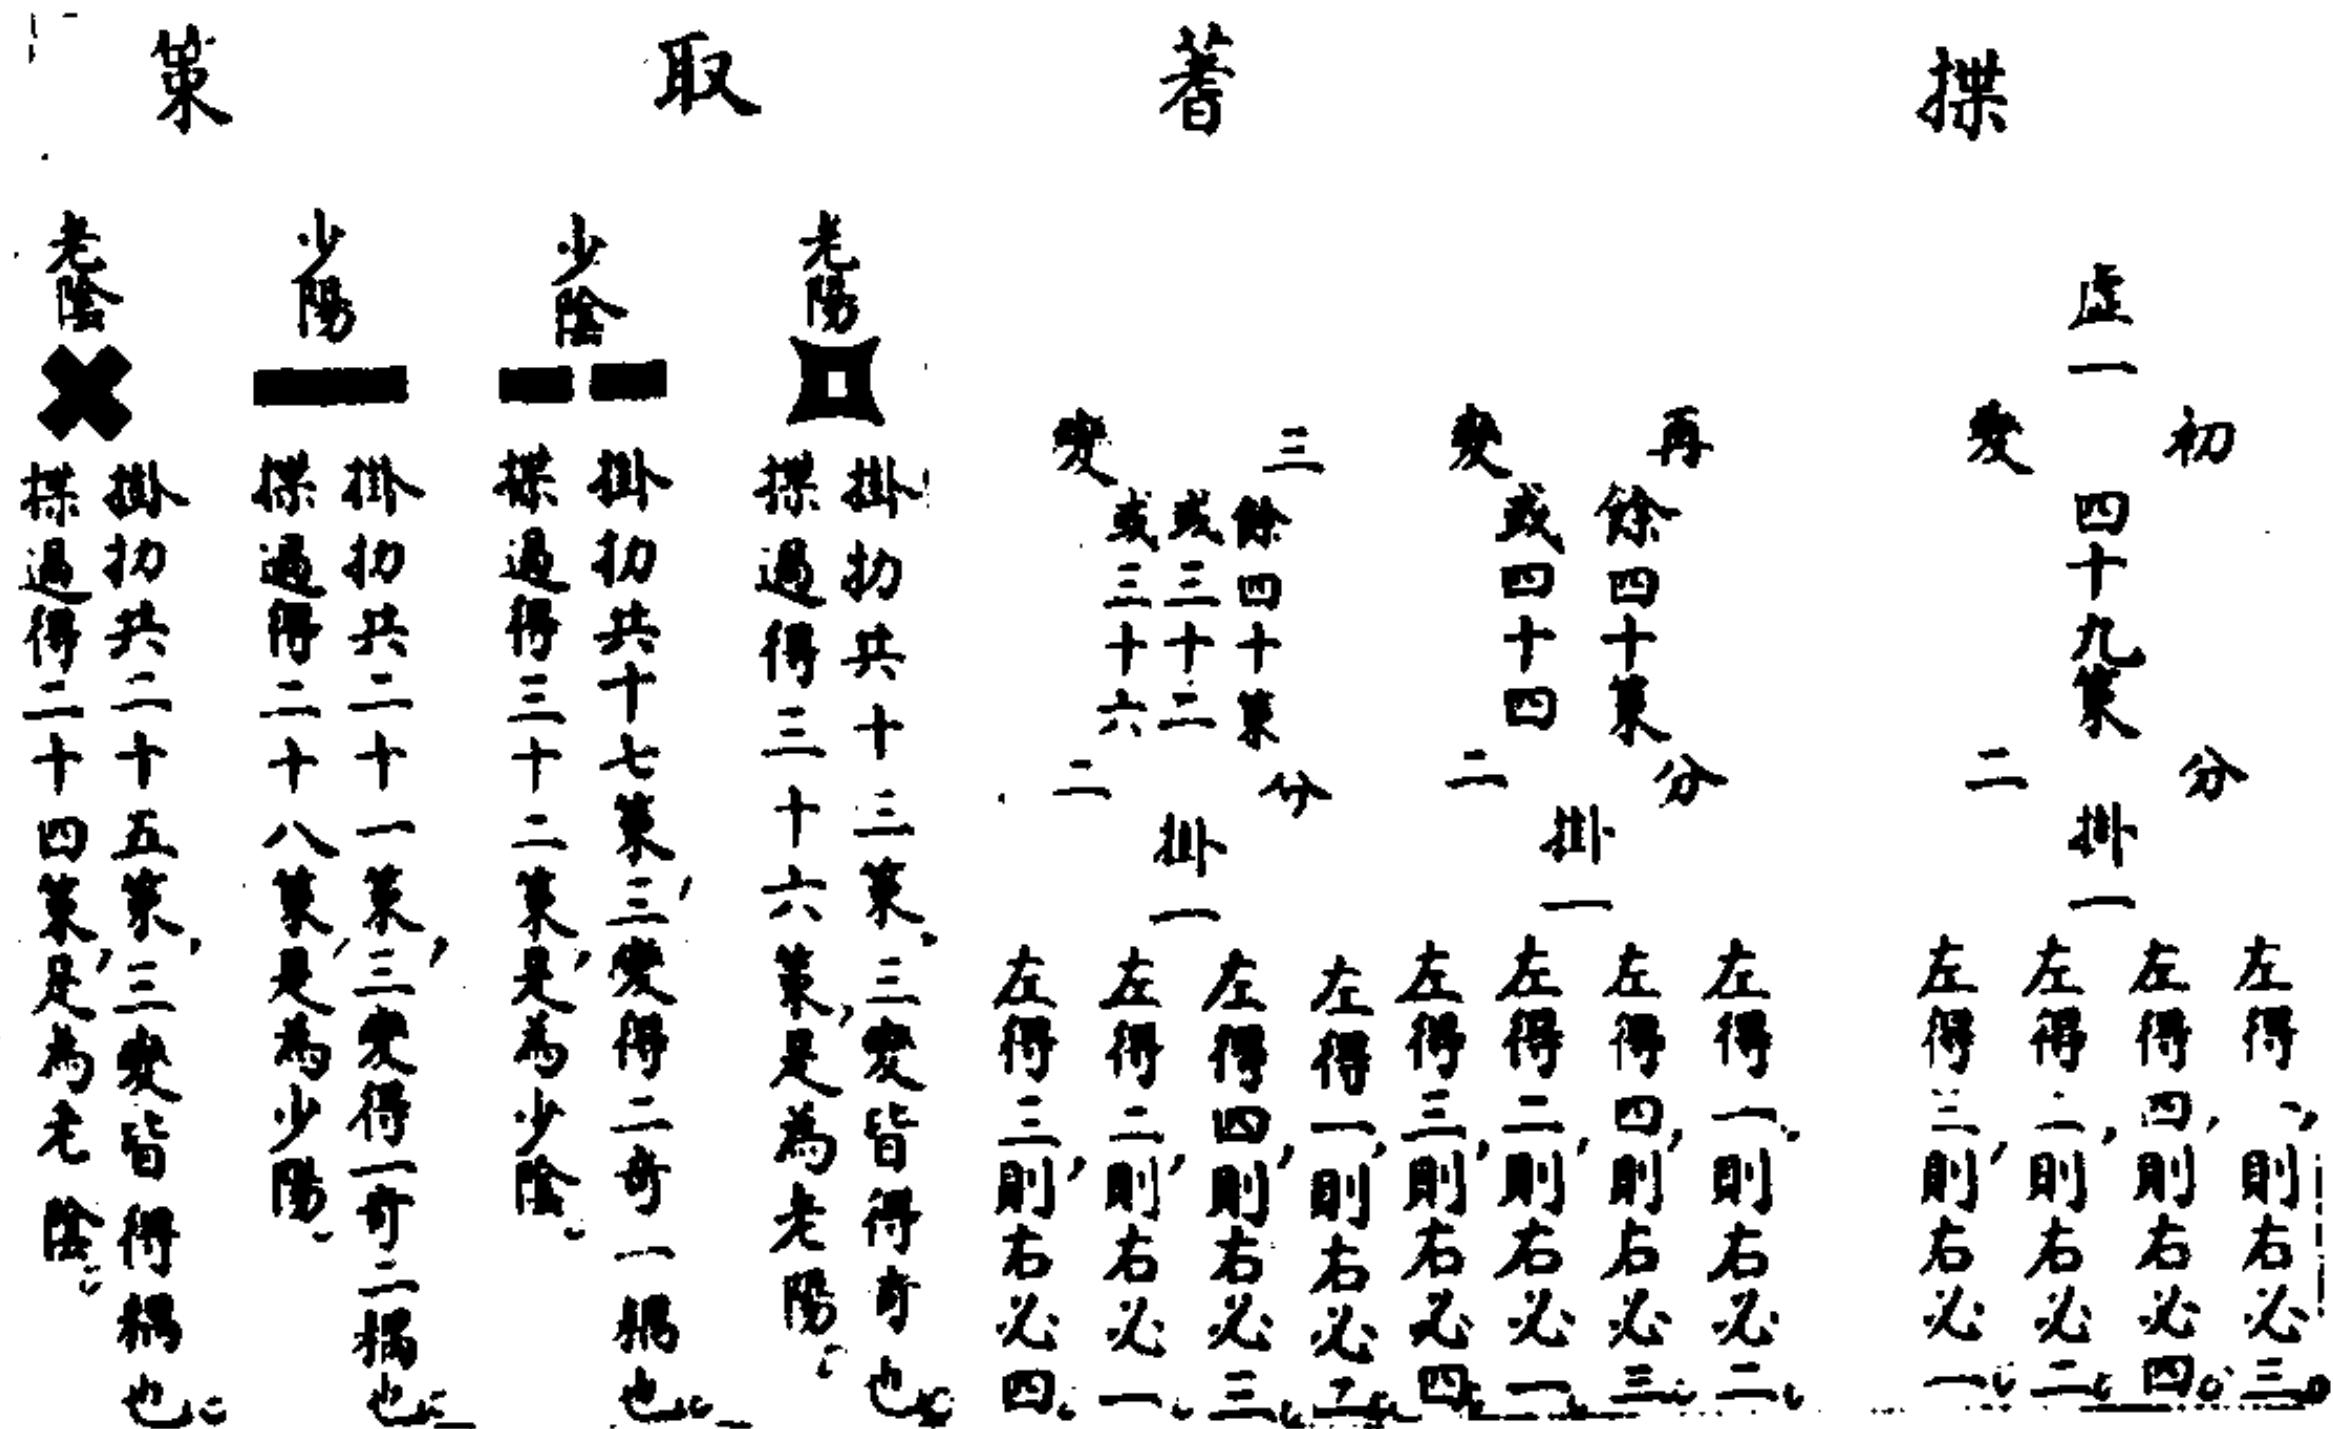 揲蓍取策
虛一
初變
四十九策
分二
掛一
左得一，則右必三。
左得四，則右必四。
左得二，則右必二。
左得三，則右必一。
再變
餘四十策
或四十四
分二
掛一
左得一，則右必二。
左得四，則右必三。
左得二，則右必一。
左得三，則右必四。
三變
餘四十策
或三十二
或三十六
分二
掛一
左得一，則右必二。
左得四，則右必三。
左得二，則右必一。
左得三，則右必四。
老陽
掛扐共十三策，三變皆得奇也。
揲過得三十六策，是為老陽。
少陰
掛扐共十七策，三變得二奇一耦也。
揲過得三十二策，是為少陰。
少陽
掛扐共二十一策，三變得一奇二耦也。
揲過得二十八策，是為少陽。
老陰
掛扐共二十五策，三變皆得耦也。
揲過得二十四策，是為老陰。